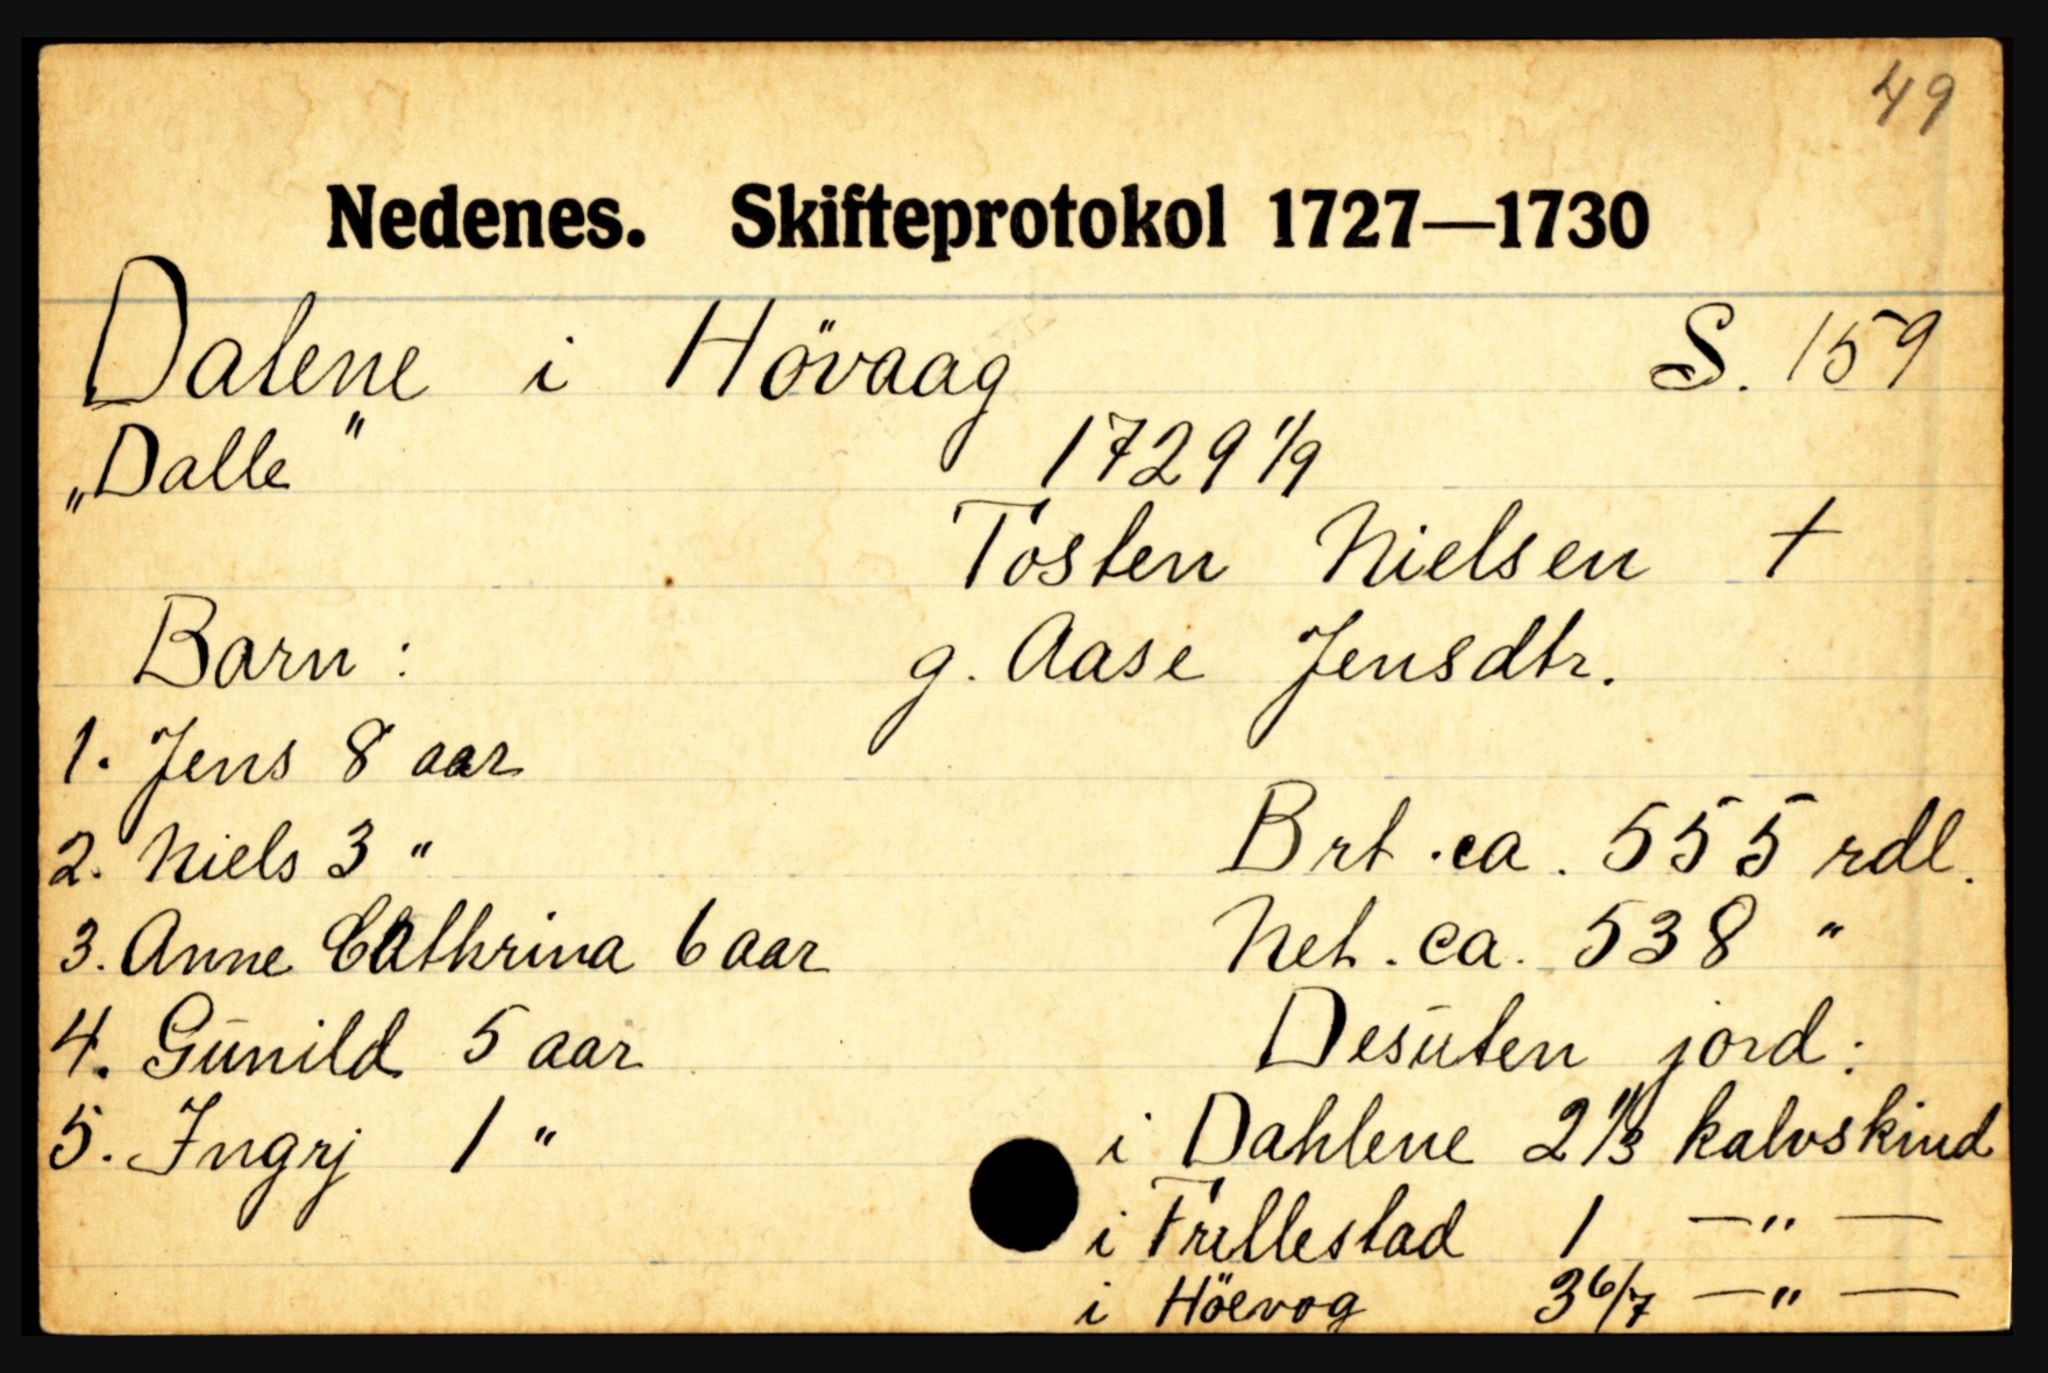 49
Nedenes. Skifteprotokol 1727—1730
Dalene i Hövaag S. 159
„Dalle"
1729 1/9
Tosten Nielsen †
Barn: g. Aase Jensdtr.
1. Jens 8 aar
2. Niels 3 " Brt. ca. 555 rdl.
3. Anne Cathrina 6 aar Net. ca. 538 "
4. Gunild 5 aar Desuten jord:
5. Ingrj 1 " i Dahlene 2 1/3 kalvskind
i Trellestad 1 —"—
i Höevog 3 6/7 —"—